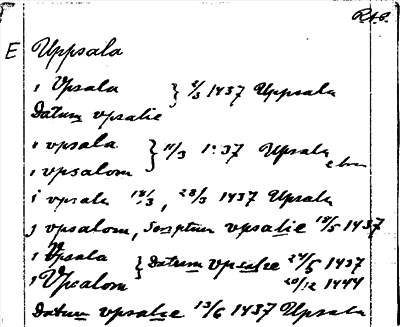 RAP.
E Uppsala
i Vpsala } 2/3 1437 Uppsala
Datum vpsalie
i vpsala } 11/3 1437 Upsala
i vpsalom
i vpsala 18/3, 28/3 1437 Upsala
j vpsalom, Scriptum vpsalie 18/5 1437
i Vpsala } Datum vpsalie 24/5 1437
i Vpsalom 20/12 1444
Datum vpsalie 13/6 1437 Upsala